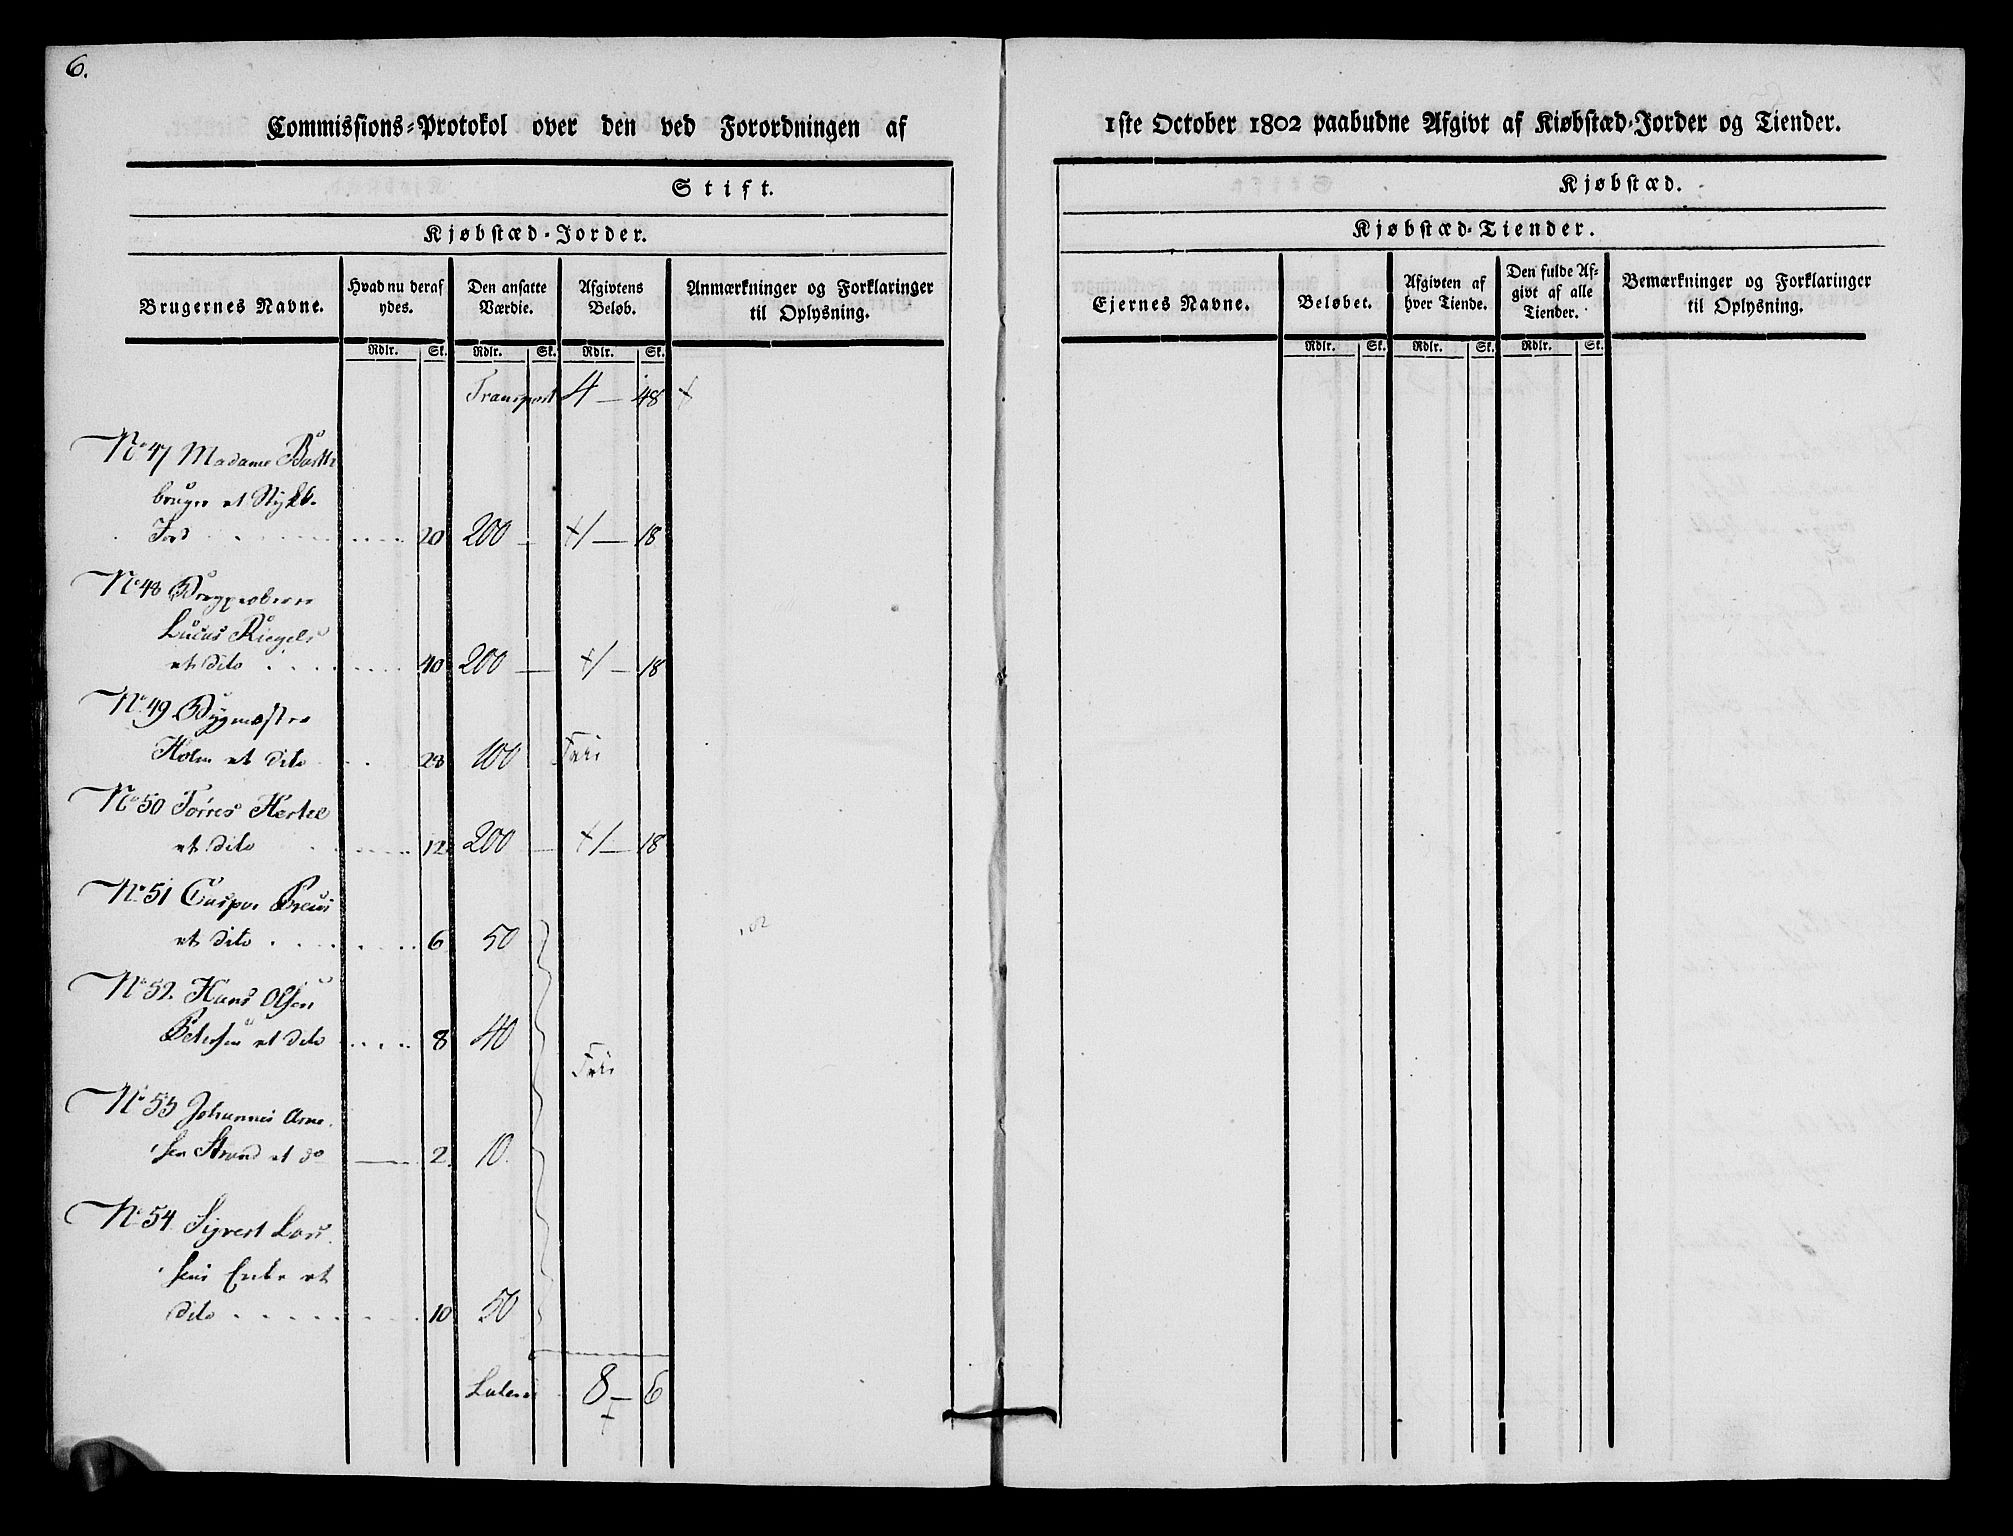 6.
Commissions-Protokol over den ved Forordningen af
Stift.
Kjøbstæd-Jorder.
Brugernes Navne.
Hvad nu deraf ydes.
Den ansatte Værdie.
Afgivtens Beløb.
Anmærkninger og Forklaringer til Oplysning.
Rdlr. Sk. Rdlr. Sk. Rdlr. Sk.
Transport 4 — 48
No 47 Madame
bruger et Stykke
Jord 20 200 — 1 — 18
No 48
Lucas Riegels
et dito 40 200 — 1 — 18
No 49 Bygmester
Holm et dito 28 100 Frie
No 50 Tørres Hertel
et dito 12 200 — 1 — 18
No 51 Casper
et dito 6 50
No 52. Hans Olsen
Petersen et dito 8 40
Frie
No 53 Johannes Arne-
sen Strand et do 2 10
No 54 Sijvert Lar-
sens Enke et
dito 10 50
Lateris 8 — 6
1ste October 1802 paabudne Afgivt af Kiøbstæd-Jorder og Tiender.
Kjøbstæd.
Kjøbstæd-Tiender.
Ejernes Navne.
Beløbet.
Afgivten af hver Tiende.
Den fulde Afgivt af alle Tiender.
Bemærkninger og Forklaringer til Oplysning.
Rdlr. Sk. Rdlr. Sk. Rdlr. Sk.